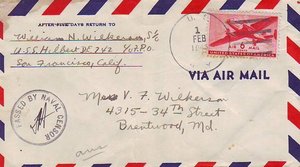 AFTER FIVE DAYS RETURN TO
William N. Wilkerson, S/c
U.S.S. Hilbert DE 742 % F.P.O.
San Francisco, Calif.
U.S.
1
FEB
AIR 6 MAIL
UNITED STATES OF AMERICA
VIA AIR MAIL
PASSED BY NAVAL CENSOR
Miss V. F. Wilkerson
4315-34th Street
Brentwood, Md.
ans